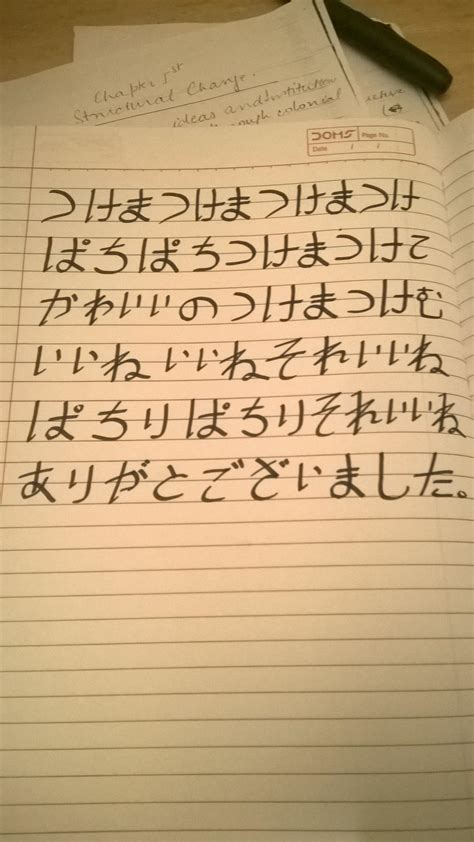 Chapter 1st
Structural Change.
ideas and Institution
colonial
DOMS
Page No.
Date / /
つけまつけまつけまつけ
ぱちぱちつけまつけて
かわいいのつけまつける
いいねいいねそれいいね
ぱちりぱちりそれいいね
ありがとございました。